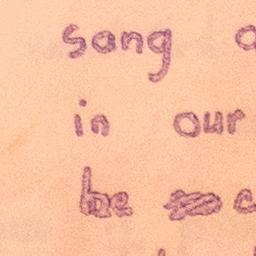 sang
in our
be